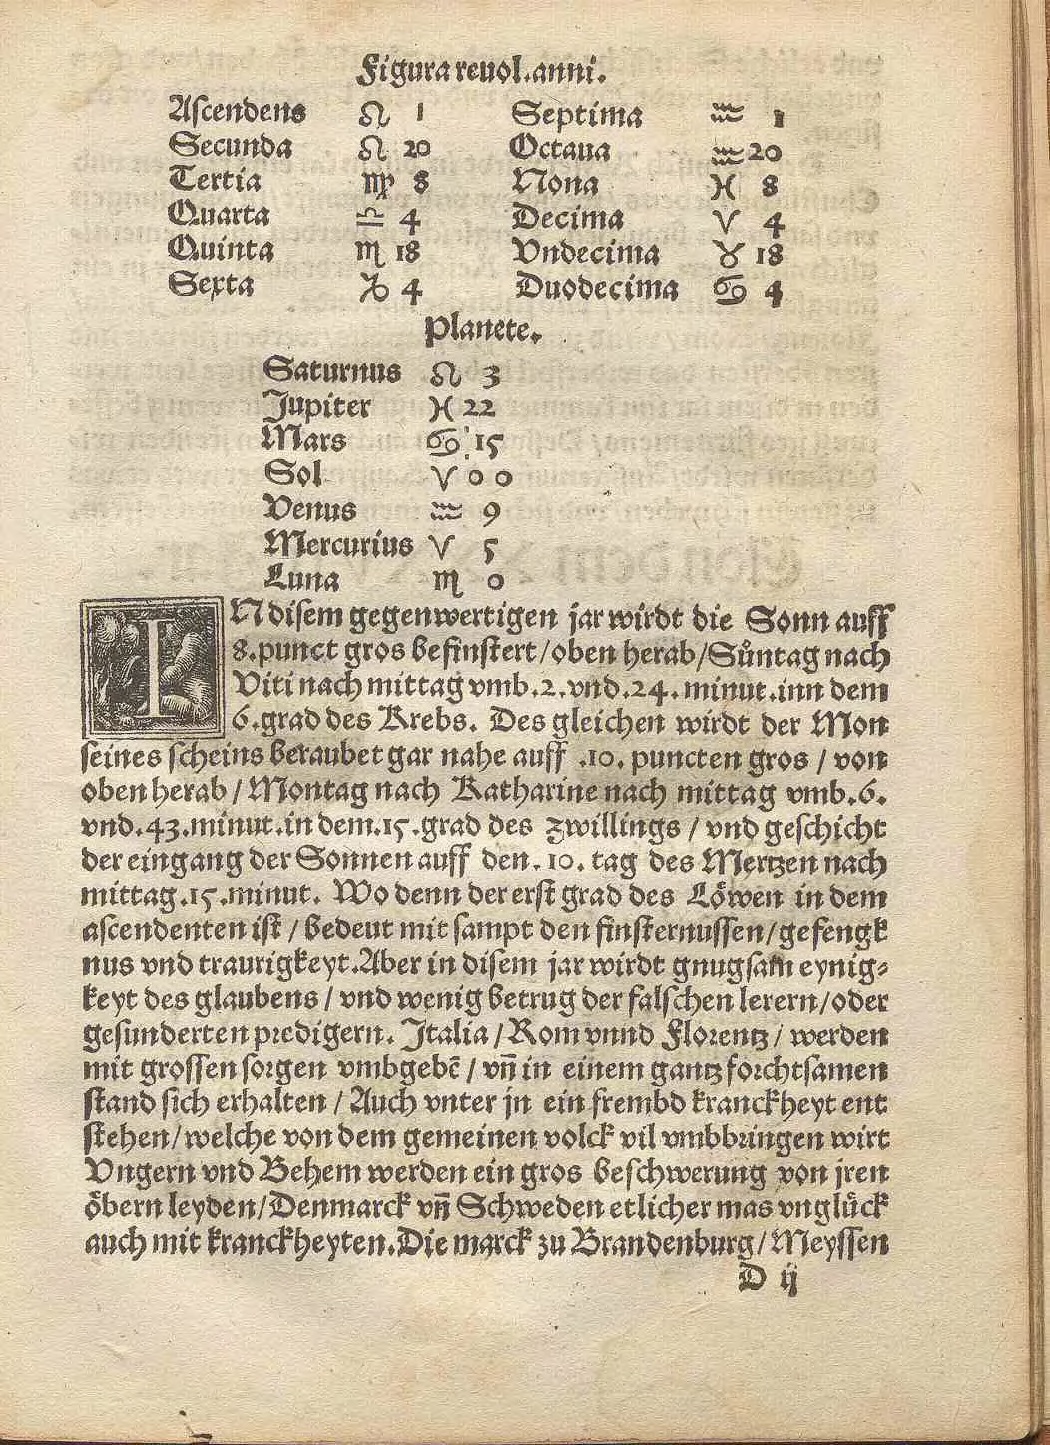 Figura reuol.anni.
Ascendens ♌ 1 Septima ♒ 1
Secunda ♌ 20 Octaua ♒ 20
Tertia ♍ 8 Nona ♓ 8
Quarta ♎ 4 Decima ♈ 4
Quinta ♏ 18 Vndecima ♉ 18
Sexta ♑ 4 Duodecima ♋ 4
Planete.
Saturnus ♌ 3
Jupiter ♓ 22
Mars ♋ 15
Sol ♈ 0 0
Venus ♒ 9
Mercurius ♈ 5
Luna ♏ 0
IN disem gegenwertigen jar wirdt die Sonn auff
8.punct gros befinſtert/oben herab/Sůntag nach
Viti nach mittag vmb.2.vnd.24.minut.inn dem
6.grad des Krebs. Des gleichen wirdt der Mon
ſeines ſcheins beraubet gar nahe auff .10. puncten gros / von
oben herab / Montag nach Katharine nach mittag vmb.6.
vnd.43.minut.in dem.15.grad des zwillings / vnd geſchicht
der eingang der Sonnen auff den.10. tag des Mertzen nach
mittag.15.minut. Wo denn der erſt grad des Löwen in dem
aſcendenten iſt / bedeut mit ſampt den finſternuſſen/gefengk
nus vnd traurigkeyt.Aber in diſem jar wirdt gnugſam eynig⸗
keyt des glaubens / vnd wenig betrug der falſchen lerern/oder
geſunderten predigern. Italia / Rom vnnd Florentz / werden
mit groſſen ſorgen vmbgebẽ / vñ in einem gantz forchtſamen
ſtand ſich erhalten / Auch vnter jn ein frembd kranckheyt ent
ſtehen/welche von dem gemeinen volck vil vmbbringen wirt
Vngern vnd Behem werden ein gros beſchwerung von jren
öbern leyden/Denmarck vñ Schweden etlicher mas vnglůck
auch mit kranckheyten.Die marck zu Brandenburg/Meyſſen
D ij